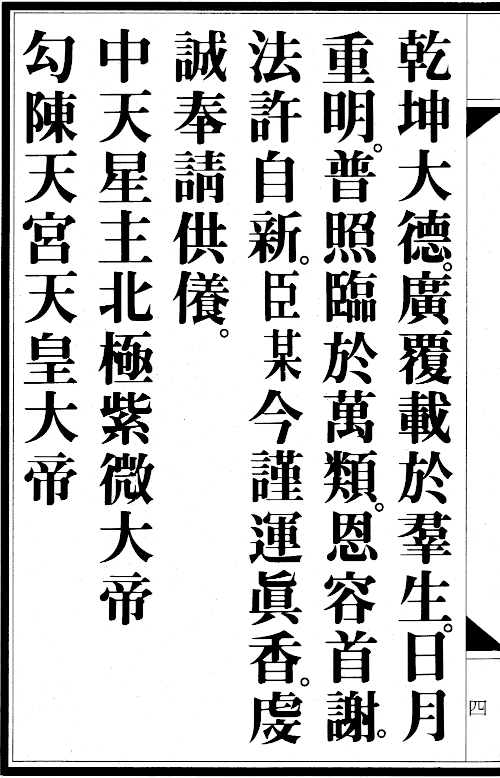 乾坤大德。廣覆載於羣生。日月
重明。普照臨於萬類。恩容首謝。
法許自新。臣某今謹運眞香。虔
誠奉請供養。
中天星主北極紫微大帝
勾陳天宮天皇大帝
四